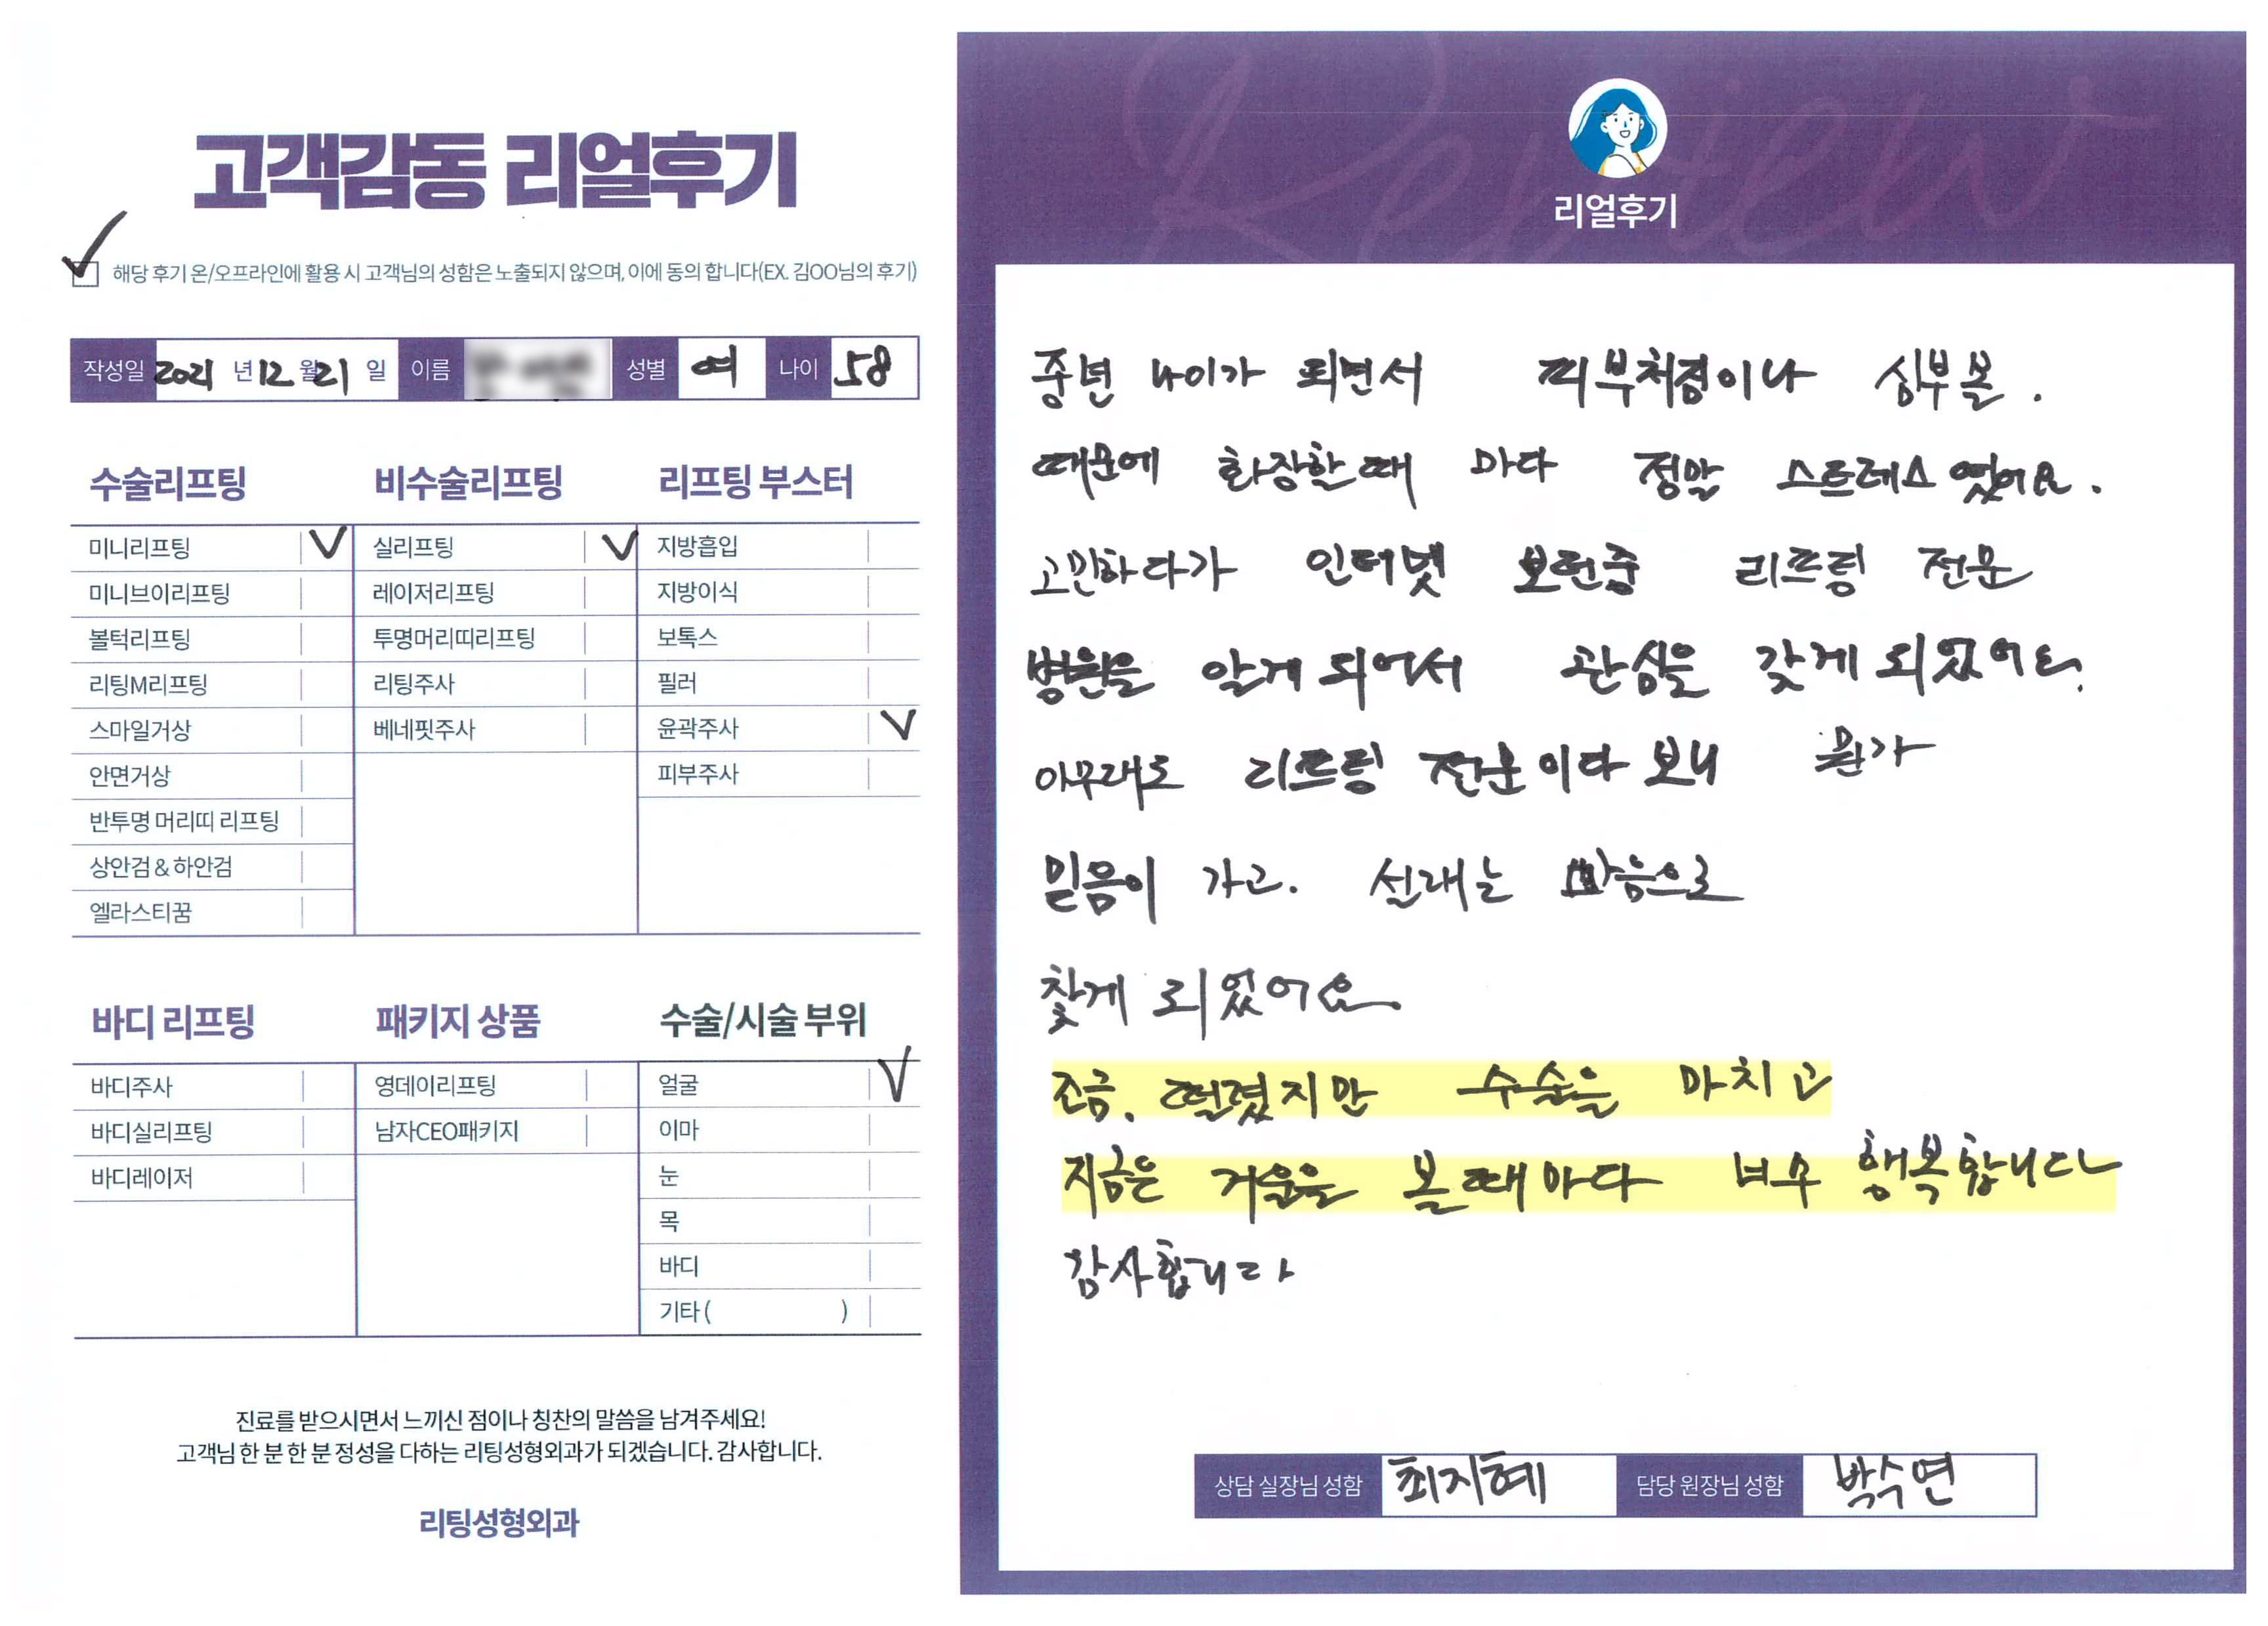 고객감동 리얼후기
해당 후기 온/오프라인에 활용 시 고객님의 성함은 노출되지 않으며, 이에 동의 합니다(EX. 김OO님의 후기)
작성일 2021 년 12 월 21 일 이름 성별 여 나이 58
수술리프팅 비수술리프팅 리프팅 부스터
미니리프팅 V 실리프팅 V 지방흡입
미니브이리프팅 레이저리프팅 지방이식
볼턱리프팅 투명머리띠리프팅 보톡스
리팅M리프팅 리팅주사 필러
스마일거상 베네핏주사 윤곽주사 V
안면거상 피부주사
반투명 머리띠 리프팅
상안검 & 하안검
엘라스티꿈
바디 리프팅 패키지 상품 수술/시술 부위
바디주사 영데이리프팅 얼굴 V
바디실리프팅 남자CEO패키지 이마
바디레이저 눈
목
바디
기타 ( )
진료를 받으시면서 느끼신 점이나 칭찬의 말씀을 남겨주세요!
고객님 한 분 한 분 정성을 다하는 리팅성형외과가 되겠습니다. 감사합니다.
리팅성형외과
Review
리얼후기
중년 나이가 되면서 피부처짐이나 심부볼.
때문에 화장할때 마다 정말 스트레스 였어요.
고민하다가 인터넷 보던중 리프팅 전문
병원을 알게 되어서 관심을 갖게 되었어요.
아무래도 리프팅 전문이다 보니 뭔가
믿음이 가고. 설래는 마음으로
찾게 되었어요.
조금. 떨렸지만 수술을 마치고
지금은 거울을 볼때마다 너무 행복합니다
감사합니다
상담 실장님 성함 최지혜 담당 원장님 성함 박수연